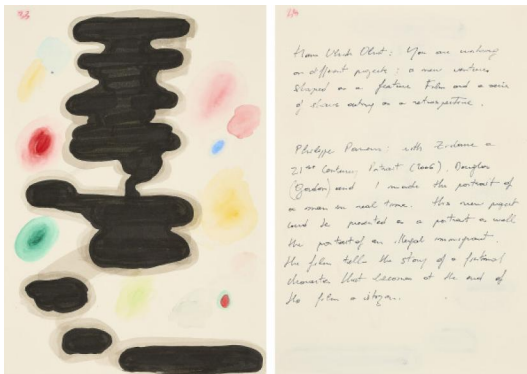 Hans Ulrich Obrist: You are working
on different projects; a new venture
shaped as a feature Film and a series
of shows acting as a retrospective.
Philippe Parreno: with Zidane a
21st Century Portrait (2006), Douglas
(Gordon) and I made the portrait of
a man in real time. this new project
could be presented as a portrait as well
the portrait of an illegal immigrant.
the film tells the story of a fictional
character that becomes at the end of
the film a citizen.